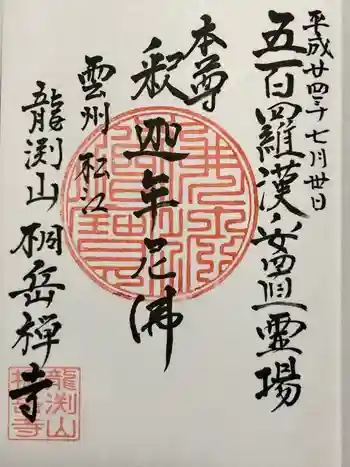 平成廿四年七月廿日
五百羅漢安置霊場
本尊
釈迦牟尼佛
雲州 松江
龍渕山 桐岳禅寺
龍渕山
桐岳寺